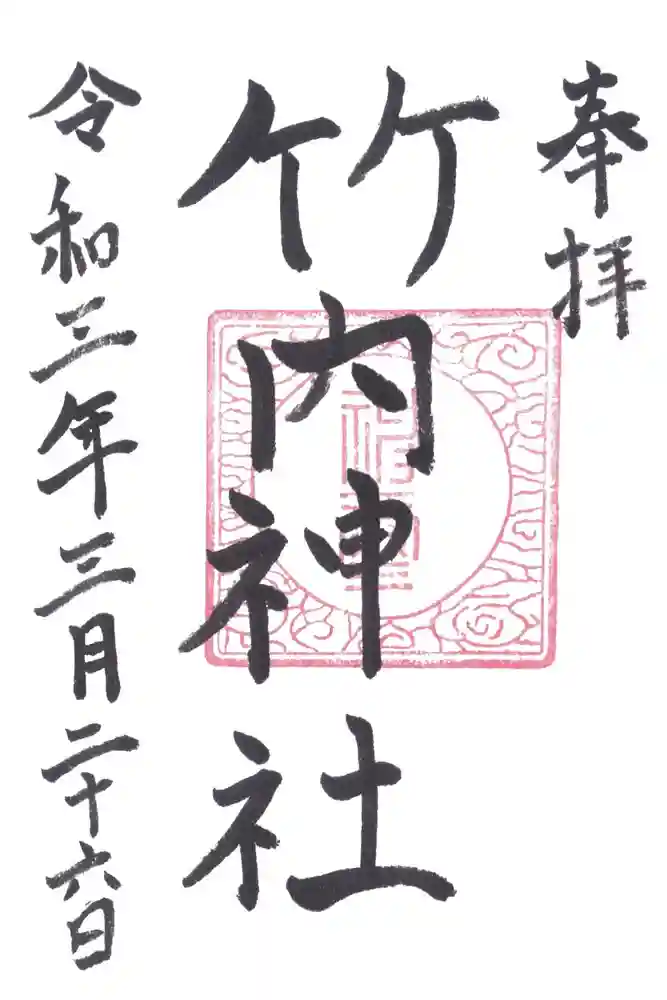 奉拝
竹内神社
令和三年三月二十六日